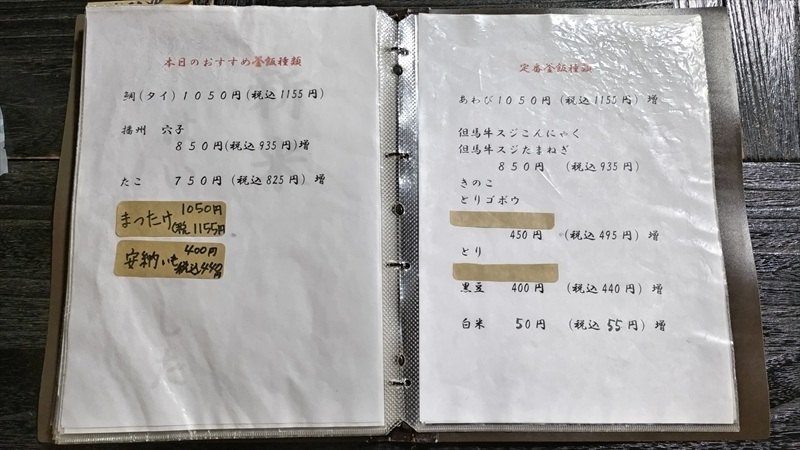 本日のおすすめ釜飯種類
鯛(タイ) 1050円(税込1155円)
播州 穴子
850円(税込935円)増
たこ 750円(税込825円)増
まつたけ 1050円
(税1155円
安納いも 400円
税込440円
定番釜飯種類
あわび1050円(税込1155円)増
但馬牛スジこんにゃく
但馬牛スジたまねぎ
850円 (税込935円)
きのこ
とりゴボウ
450円 (税込495円)増
とり
黒豆 400円 (税込440円)増
白米 50円 (税込55円)増